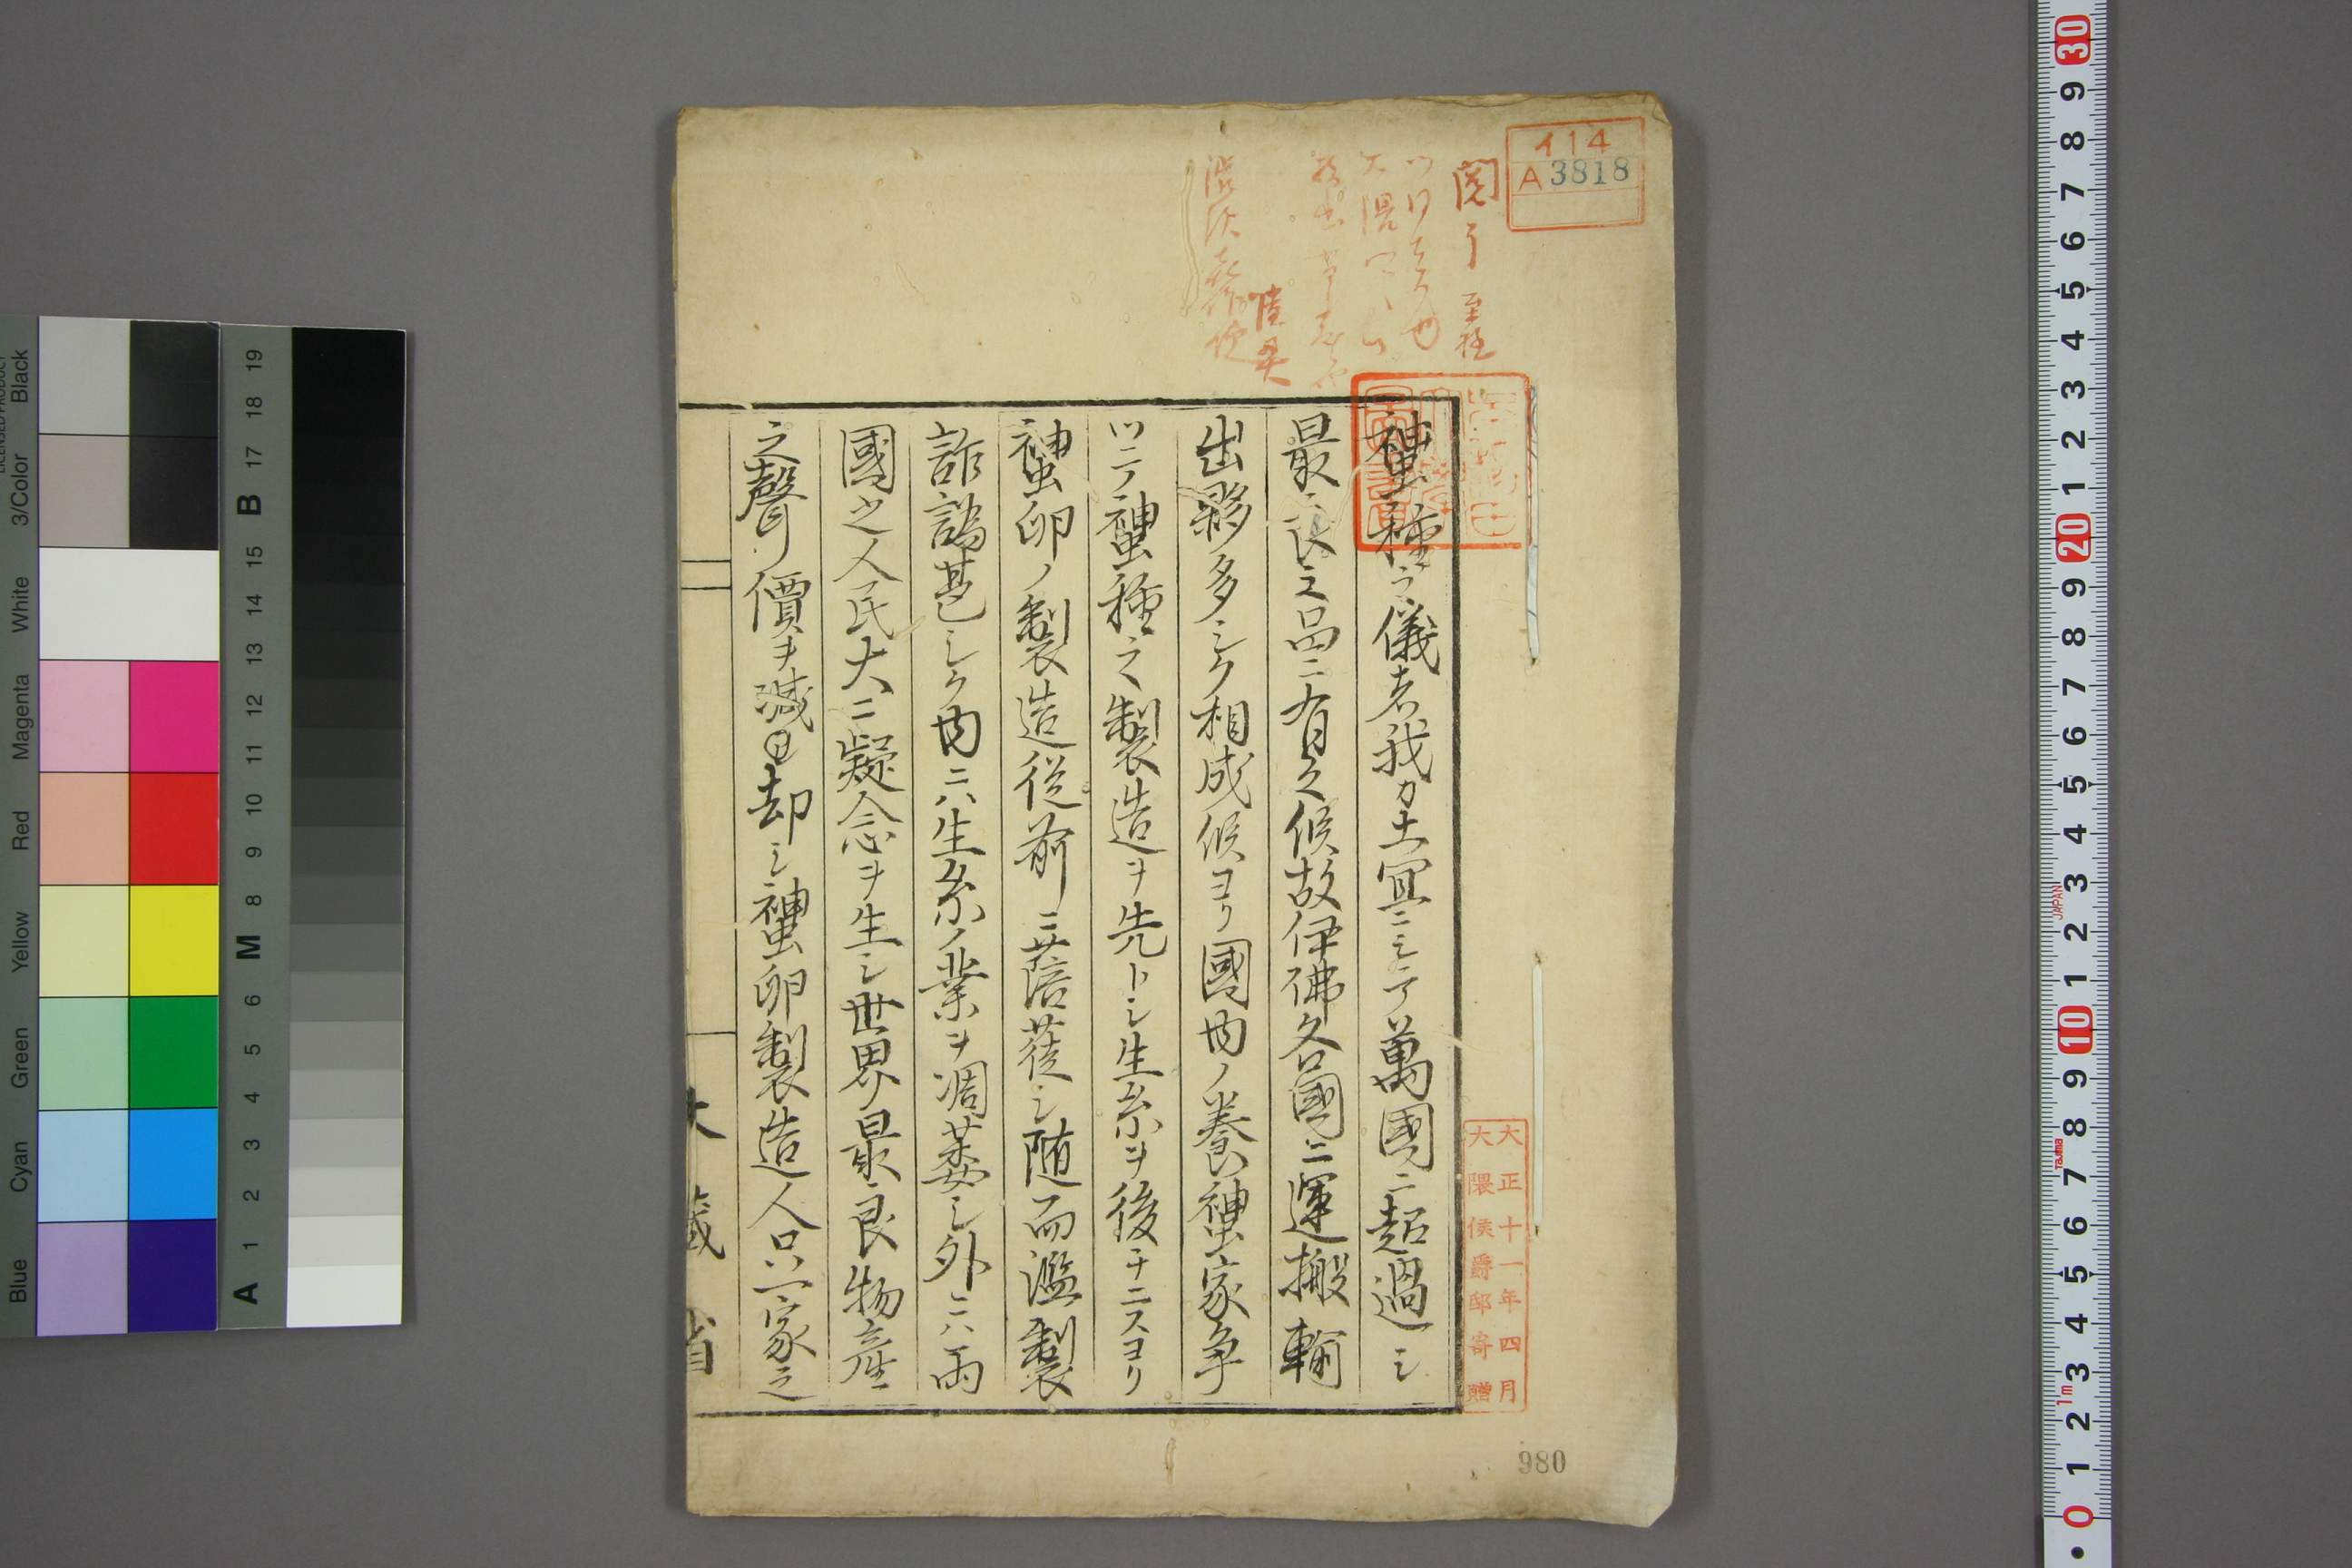 イ14
A 3818
閲了 至極
渋沢
蝅種之儀者我カ土宜ニシテ萬國ニ超過シ
最良之品ニ有之候故伊佛各國ニ運搬輸
出夥多シク相成候ヨリ國内ノ養蝅家争
ツテ蝅種之製造ヲ先トシ生糸ヲ後チニスヨリ
蝅卵ノ製造従前ニ蓓蓰シ随而濫製
詐譌甚シク内ニハ生糸ノ業ヲ凋萎シ外ニハ両
國之人民大ニ疑念ヲ生シ世界最良物産
之聲價ヲ減却シ蝅卵製造人只一家之
大藏省
大正十一年四月
大隈侯爵邸寄贈
980